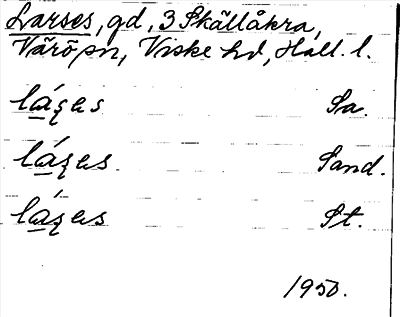 Larses, gd, 3 Skällåkra,
Värö sn, Viske hd, Hall. l.
lá̱ʂɐs Sa.
lá̱ʂɐs Sand.
lá̱ʂɐs St.
1950.